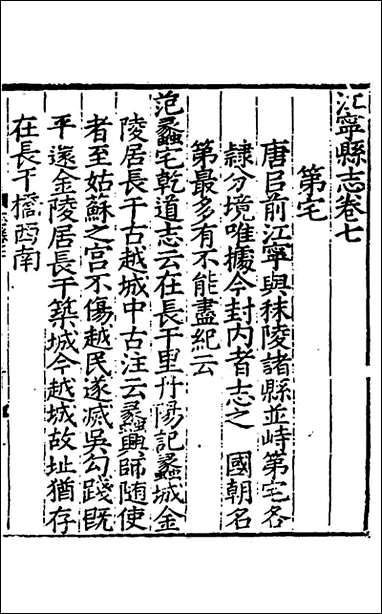 江寧縣志卷七
第宅
唐㠯前江寧與秣陵諸縣並峙第宅各
隸分境唯據今封内者志之　國朝名
第最多有不能盡紀云
范蠡宅乾道志云在長干里丹陽記蠡城金
陵居長干古越城中古注云蠡興師随使
者至姑蘇之宫不傷越民遂滅吳勾踐既
平還金陵居長干築城今越城故址猶存
在長干橋西南